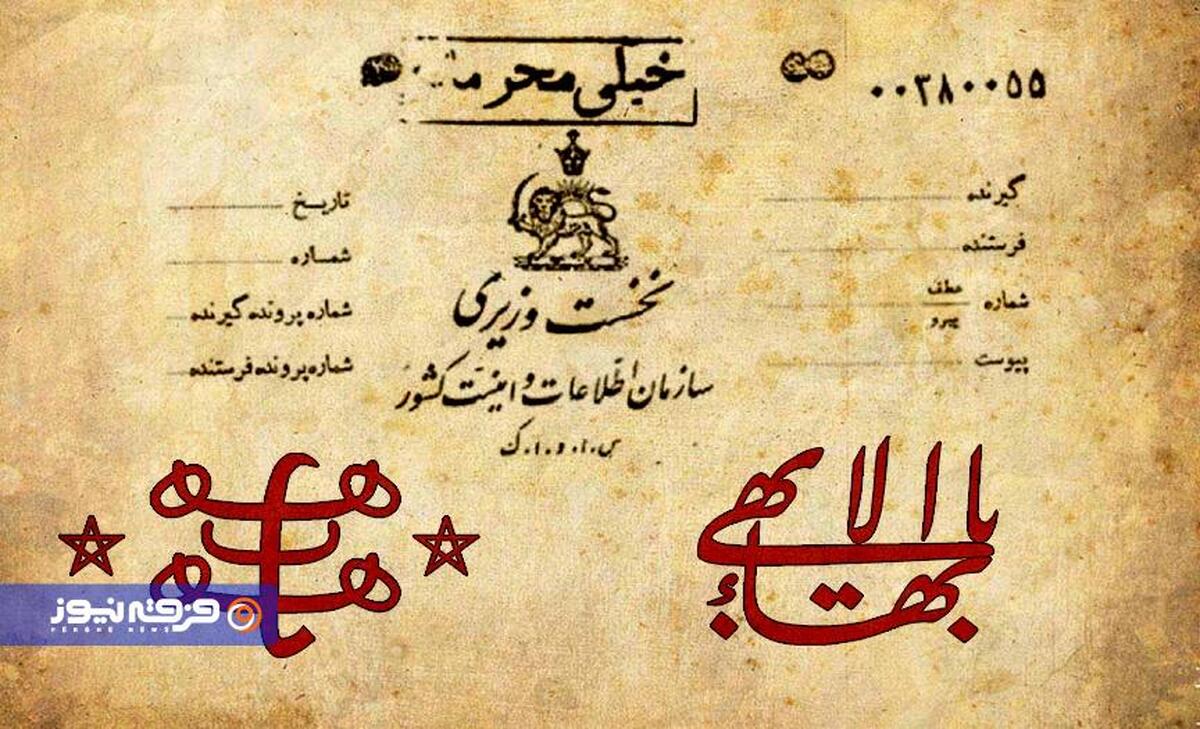 خیلی محرمانه
۰۰۳۸۰۰۵۵
گیرنده
فرستنده
شماره عطف
پیرو
پیوست
تاریخ
شماره
شماره پرونده گیرنده
شماره پرونده فرستنده
نخست وزیری
سازمان اطلاعات و امنیت کشور
س.ا.و.ا.ک
یا بهاء الابهی
فرقه نیوز
FERGHE NEWS